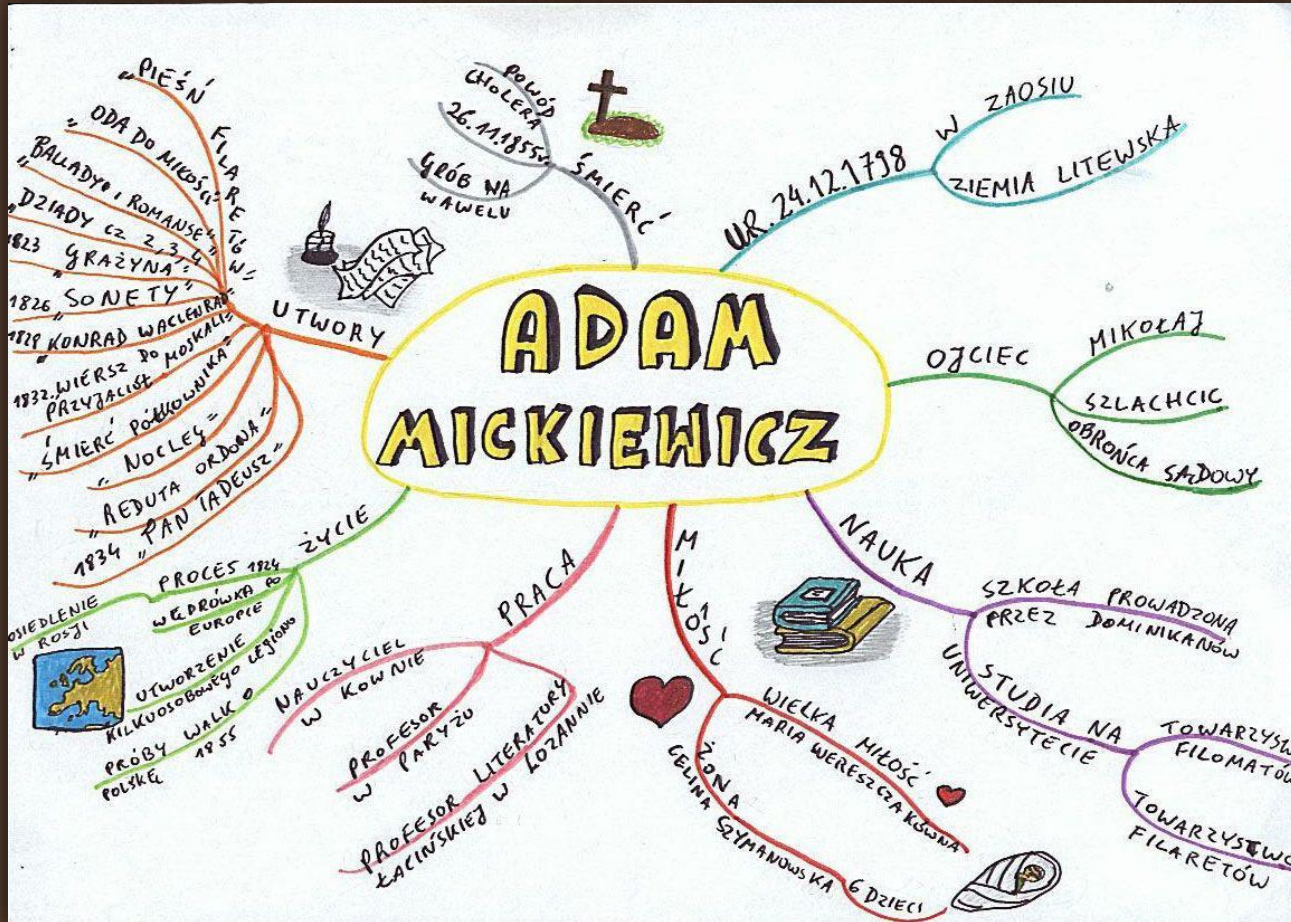 ADAM
MICKIEWICZ
UR. 24.12.1798
W ZAOSIU
ZIEMIA LITEWSKA
OJCIEC
MIKOŁAJ
SZLACHCIC
OBROŃCA SĄDOWY
NAUKA
SZKOŁA PROWADZONA
PRZEZ DOMINIKANÓW
STUDIA NA
UNIWERSYTECIE
TOWARZYSTW
FILOMATÓW
TOWARZYSTWO
FILARETÓW
MIŁOŚĆ
WIELKA MIŁOŚĆ
MARIA WERESZCZAKÓWNA
ŻONA
CELINA SZYMANOWSKA
6 DZIECI
PRACA
NAUCZYCIEL
W KOWNIE
PROFESOR
W PARYŻU
PROFESOR LITERATURY
ŁACIŃSKIEJ W LOZANNIE
ŻYCIE
PROCES 1824
OSIEDLENIE
W ROSJI
WĘDRÓWKA PO
EUROPIE
UTWORZENIE
KILKUOSOBOWEGO LEGIONU
PRÓBY WALK O
POLSKĘ 1855
UTWORY
„PIEŚŃ FILARETÓW"
„ODA DO MŁOŚCI"
„BALLADY I ROMANSE"
„DZIADY CZ 2,3,4
1823 „GRAŻYNA"
1826 „SONETY"
1828 „KONRAD WACLENRAD"
1832. WIERSZ DO
PRZYJACIÓŁ MOSKALI"
„ŚMIERĆ PÓŁKOWNIKA"
„NOCLEG"
„REDUTA ORDONA"
1834 „PAN TADEUSZ"
ŚMIERĆ
POWÓD
CHOLERA
26.11.1855r.
GRÓB NA
WAWELU